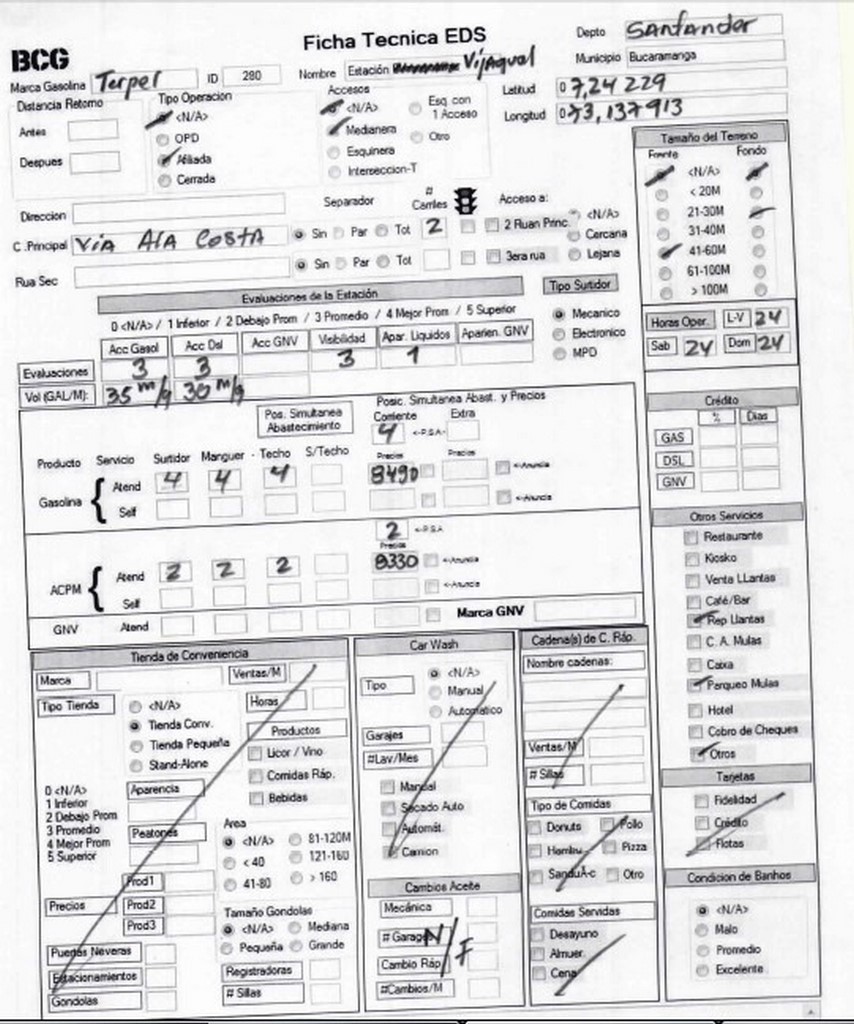 BCG
Ficha Tecnica EDS
Depto Santander
Marca Gasolina Terpel ID 280 Nombre Estación Vijagual Municipio Bucaramanga
Distancia Retorno Tipo Operacion Accesos Latitud 07,24229
<N/A> <N/A> Esq. con 1 Acceso Longitud 073,137913
Antes OPD Medianera Otro
Deepues Afiliada Esquinera
Cerrada Interseccion-T
Tamaño del Terreno
Frente Fondo
<N/A>
< 20M
21-30M
31-40M
41-60M
61-100M
> 100M
Direccion Separador # Carriles Acceso a:
C .Principal Via Ala Costa Sin Par Tot 2 2 Ruan Princ. <N/A>
Cercana
Rua Sec Sin Par Tot 3era rua Lejana
Evaluaciones de la Estación Tipo Surtidor
0 <N/A> / 1 Inferior / 2 Debajo Prom / 3 Promedio / 4 Mejor Prom / 5 Superior Mecanico
Acc Gasol Acc Dsl Acc GNV Visibilidad Apar. Liquidos Aparien. GNV Electronico
Evaluaciones 3 3 3 1 MPD
Vol (GAL/M): 35 m/g 30 m/g
Horas Oper. L-V 24
Sab 24 Dom 24
Pos. Simultanea Abastecimiento Posic. Simultanea Abast. y Precios
Corriente Extra
4 <-P.S.A-
Producto Servicio Surtidor Manguer - Techo S/Techo Precios Precios
Gasolina { Atend 4 4 4 8490 <-Anuncia
Self <-Anuncia
2 <-P.S.A
Precios
ACPM { Atend 2 2 2 8330 <-Anuncia
Self <-Anuncia
GNV Atend Marca GNV
Crédito
% Dias
GAS
DSL
GNV
Otros Servicios
Restaurante
Kiosko
Venta LLantas
Café/Bar
Rep Llantas
C. A. Mulas
Caixa
Parqueo Mulas
Hotel
Cobro de Cheques
Otros
Tarjetas
Fidelidad
Crédito
Flotas
Condicion de Banhos
<N/A>
Malo
Promedio
Excelente
Tienda de Conveniencia
Marca Ventas/M
Tipo Tienda <N/A> Horas
Tienda Conv. Productos
Tienda Pequeña Licor / Vino
Stand-Alone Comidas Ráp.
Bebidas
0 <N/A> Aparencia
1 Inferior
2 Debajo Prom
3 Promedio Peatones
4 Mejor Prom
5 Superior
Area
<N/A> 81-120M
< 40 121-160
41-80 > 160
Precios Prod1
Prod2
Prod3
Tamaño Gondolas
<N/A> Mediana
Pequeña Grande
Puertas Neveras
Estacionamientos Registradoras
Gondolas # Sillas
Car Wash
Tipo <N/A>
Manual
Automatico
Garajes
#Lav/Mes
Manual
Secado Auto
Automát.
Camion
Cambios Aceite
Mecánica
# Garages
Cambio Ráp
#Cambios/M
N/F
Cadena(s) de C. Ráp.
Nombre cadenas:
Ventas/M
# Sillas
Tipo de Comidas
Donuts Pollo
Hambu.. Pizza
SanduÃ-c Otro
Comidas Servidas
Desayuno
Almuer.
Cena